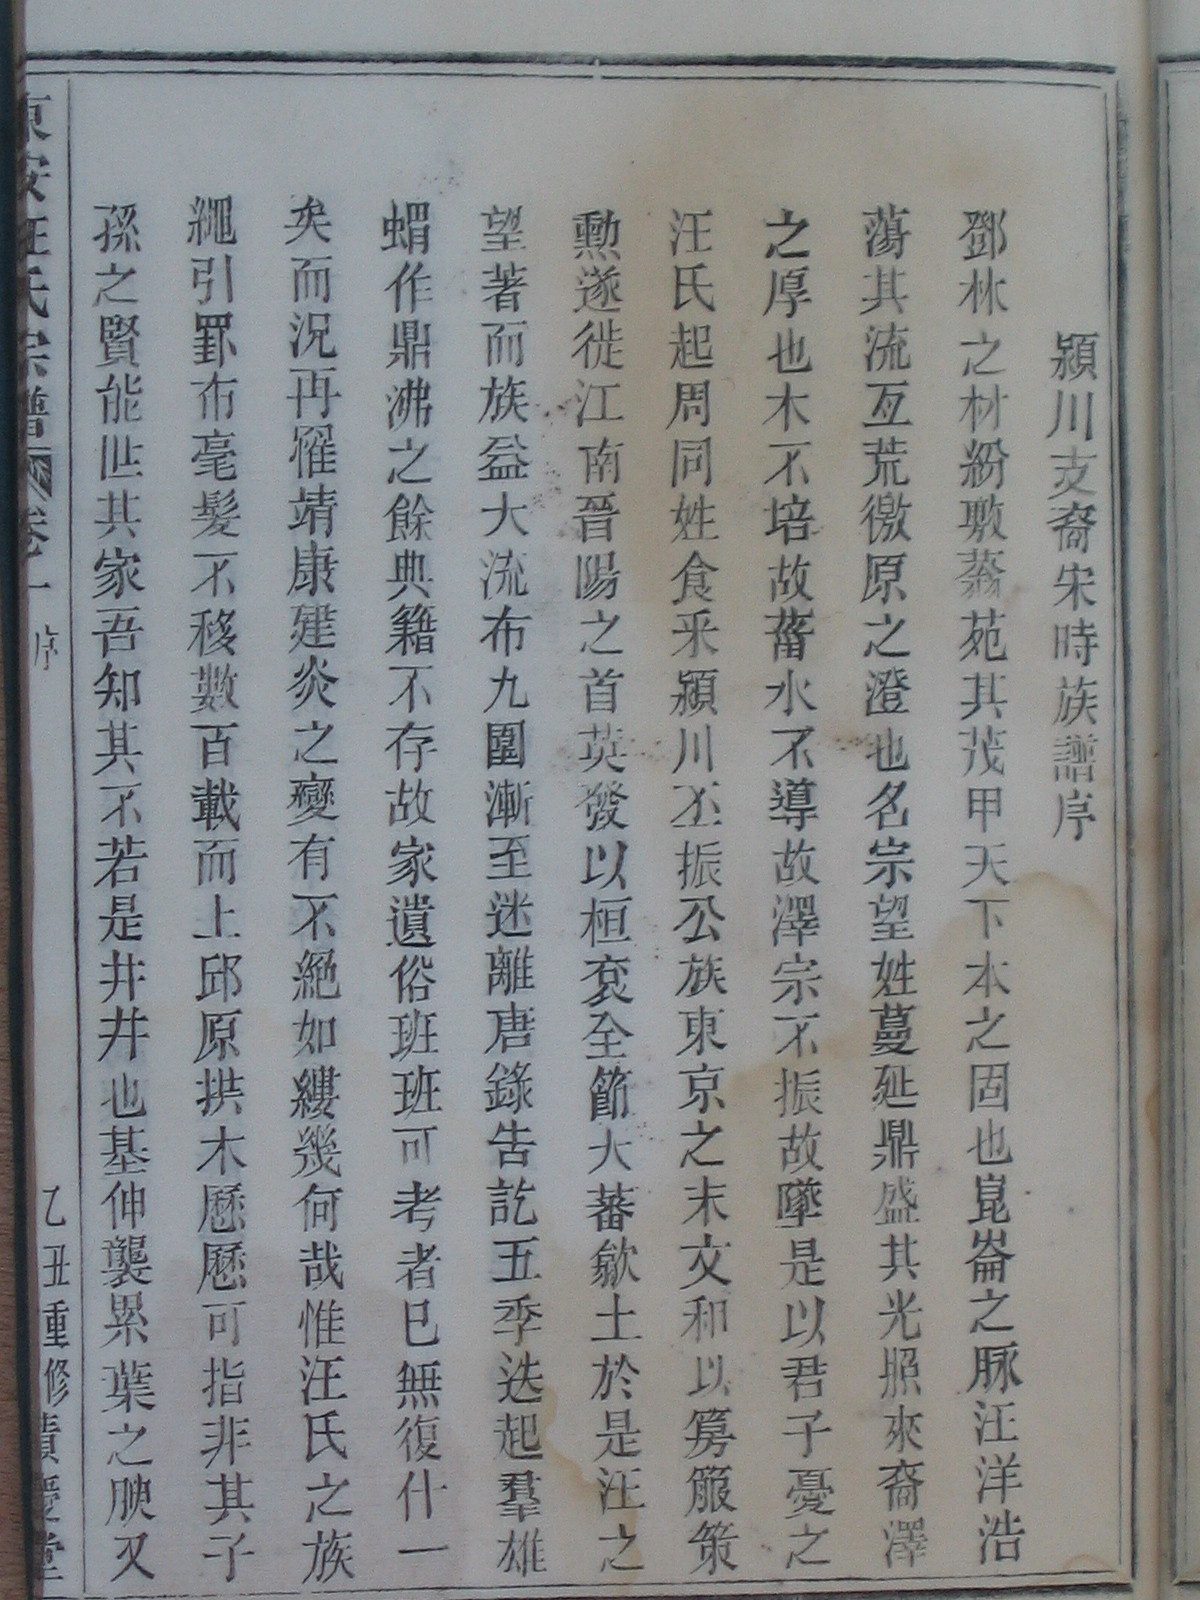 潁川支裔宋時族譜序
鄧林之材紛敷蓊苑其茂甲天下本之固也崑崙之脈汪洋浩
蕩其流亙荒徼原之澄也名宗望姓蔓延鼎盛其光照來裔澤
之厚也木不培故菑水不導故澤宗不振故墜是以君子憂之
汪氏起周同姓食采潁川丕振公族東京之末文和以勇服策
勲遂徙江南晉陽之首英發以桓袞全節大蕃歙土於是汪之
望著而族益大流布九圍漸至迷離唐錄告訖五季迭起羣雄
蝟作鼎沸之餘典籍不存故家遺俗班班可考者巳無復什一
矣而況再罹靖康建炎之變有不絕如縷幾何哉惟汪氏之族
繩引罫布毫髮不移數百載而上邱原拱木歷歷可指非其子
孫之賢能世其家吾知其不若是井井也基伸襲累葉之腴又
東安汪氏宗譜 卷一 序 乙丑重修積慶堂